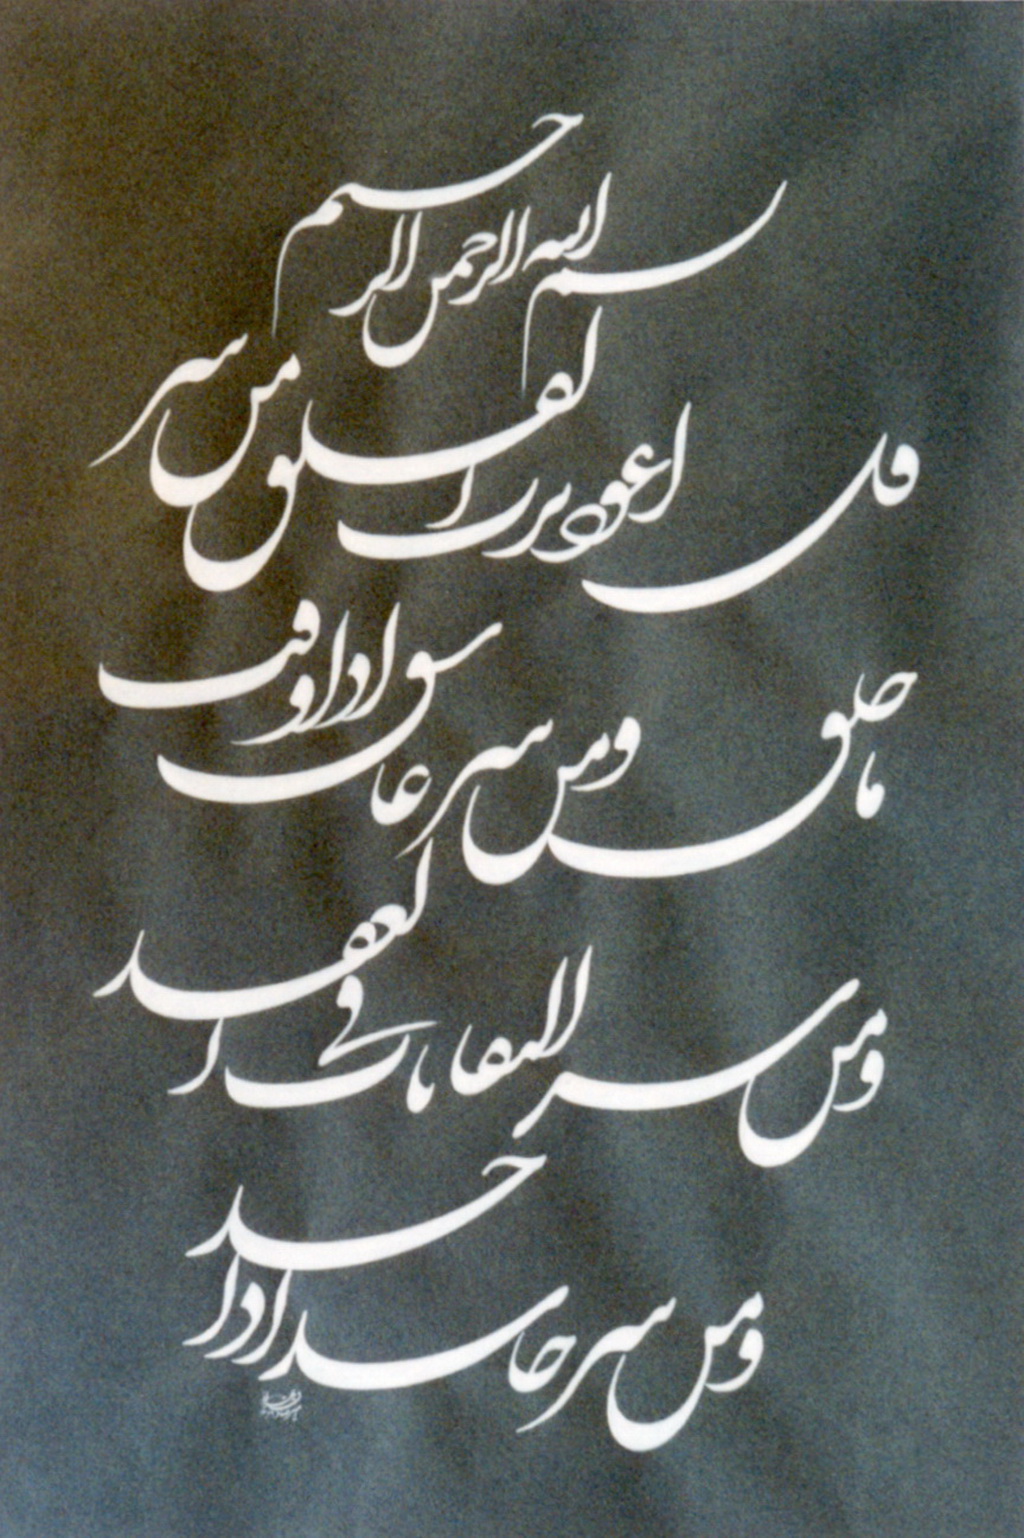 بسم الله الرحمن الرحیم
قل اعوذ برب الفلق من شر
ما خلق ومن شر غاسق اذا وقب
ومن شر النفاثات فی العقد
ومن شر حاسد اذا حسد